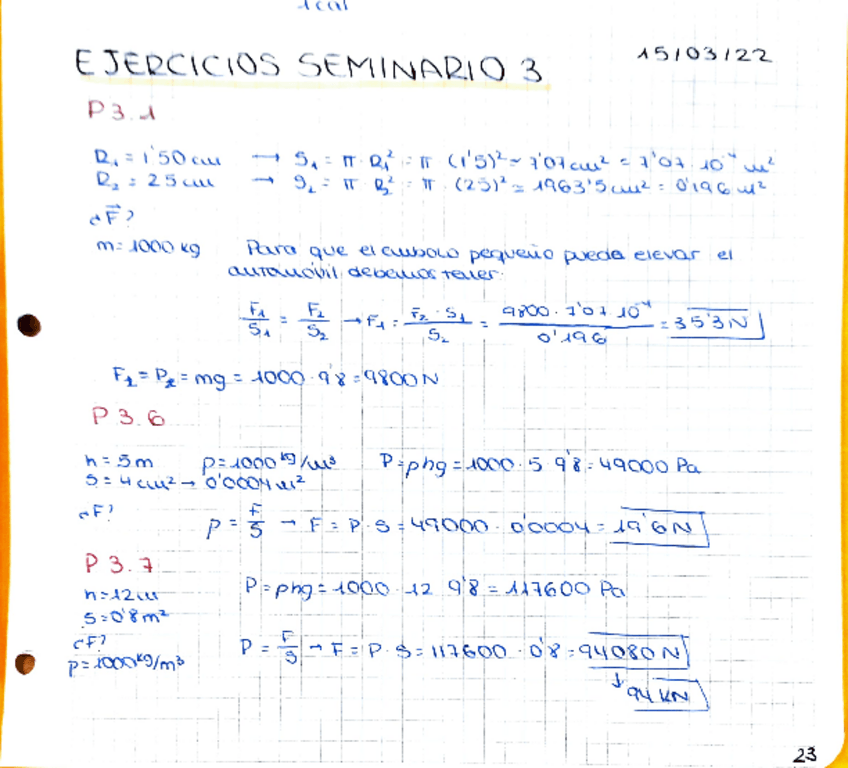 1cal
EJERCICIOS SEMINARIO 3 15/03/22
P3.1
R₁ = 1'50 cm → S₁ = π · R₁² = π (1'5)² = 7'07 cm² = 7'07 · 10⁻⁴ m²
R₂ = 25 cm → S₂ = π R₂² = π · (25)² = 1963'5 cm² = 0'196 m²
¿F⃗?
m = 1000 kg Para que el émbolo pequeño pueda elevar el
automóvil, debemos tener:
F₁/S₁ = F₂/S₂ → F₁ = F₂ · S₁/S₂ = 9800 · 7'07 · 10⁻⁴/0'196 = 35'3 N
F₂ = P₂ = mg = 1000 · 9'8 = 9800 N
P3.6
h = 5m ρ = 1000 kg/m³ P = ρhg = 1000 · 5 9'8 = 49000 Pa
S = 4 cm² → 0'0004 m²
¿F?
P = F/S → F = P · S = 49000 · 0'0004 = 19'6 N
P3.7
h = 12m P = ρhg = 1000 · 12 9'8 = 117600 Pa
S = 0'8 m²
¿F?
ρ = 1000 kg/m³ P = F/S → F = P · S = 117600 · 0'8 = 94080 N
↓ 94 KN
23